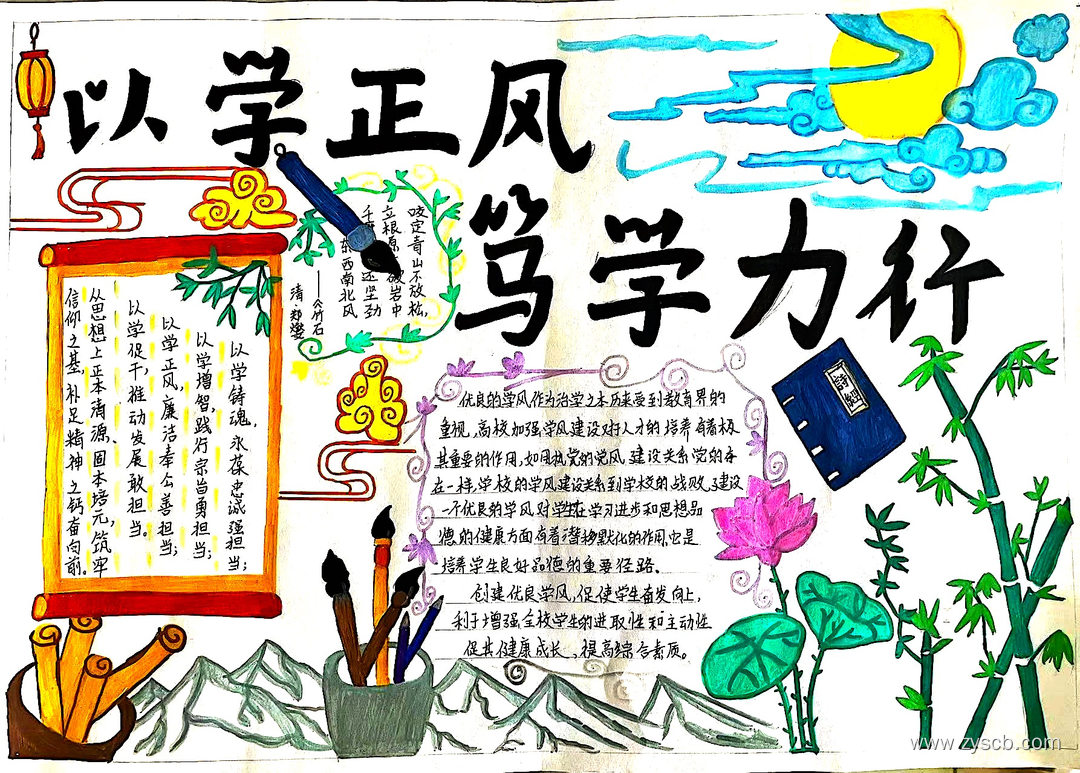 以学正风
笃学力行
咬定青山不放松,
立根原 岩中
千 还坚劲
东西南北风
——《竹石》
清·郑燮
以学铸魂,永葆忠诚强担当;
以学增智,践行宗旨勇担当;
以学正风,廉洁奉公善担当;
以学促干,推动发展敢担当。
从思想上正本清源、固本培元,筑牢
信仰之基、补足精神之钙奋向前。
詩經
优良的学风作为治学之本历来受到教育界的
重视,高校加强学风建设对于人才的培养有着极
其重要的作用,如同执党的党风建设关系党的存
在一样,学校的学风建设关系到学校的战败,建设
一个优良的学风对学生在学习进步和思想品
德的健康方面有着潜移默化的作用,它是
培养学生良好品德的重要径路.
创建优良学风,促使学生奋发向上,
利于增强全校学生的进取性和主动性
促其健康成长、提高综合素质。
www.zyscb.com